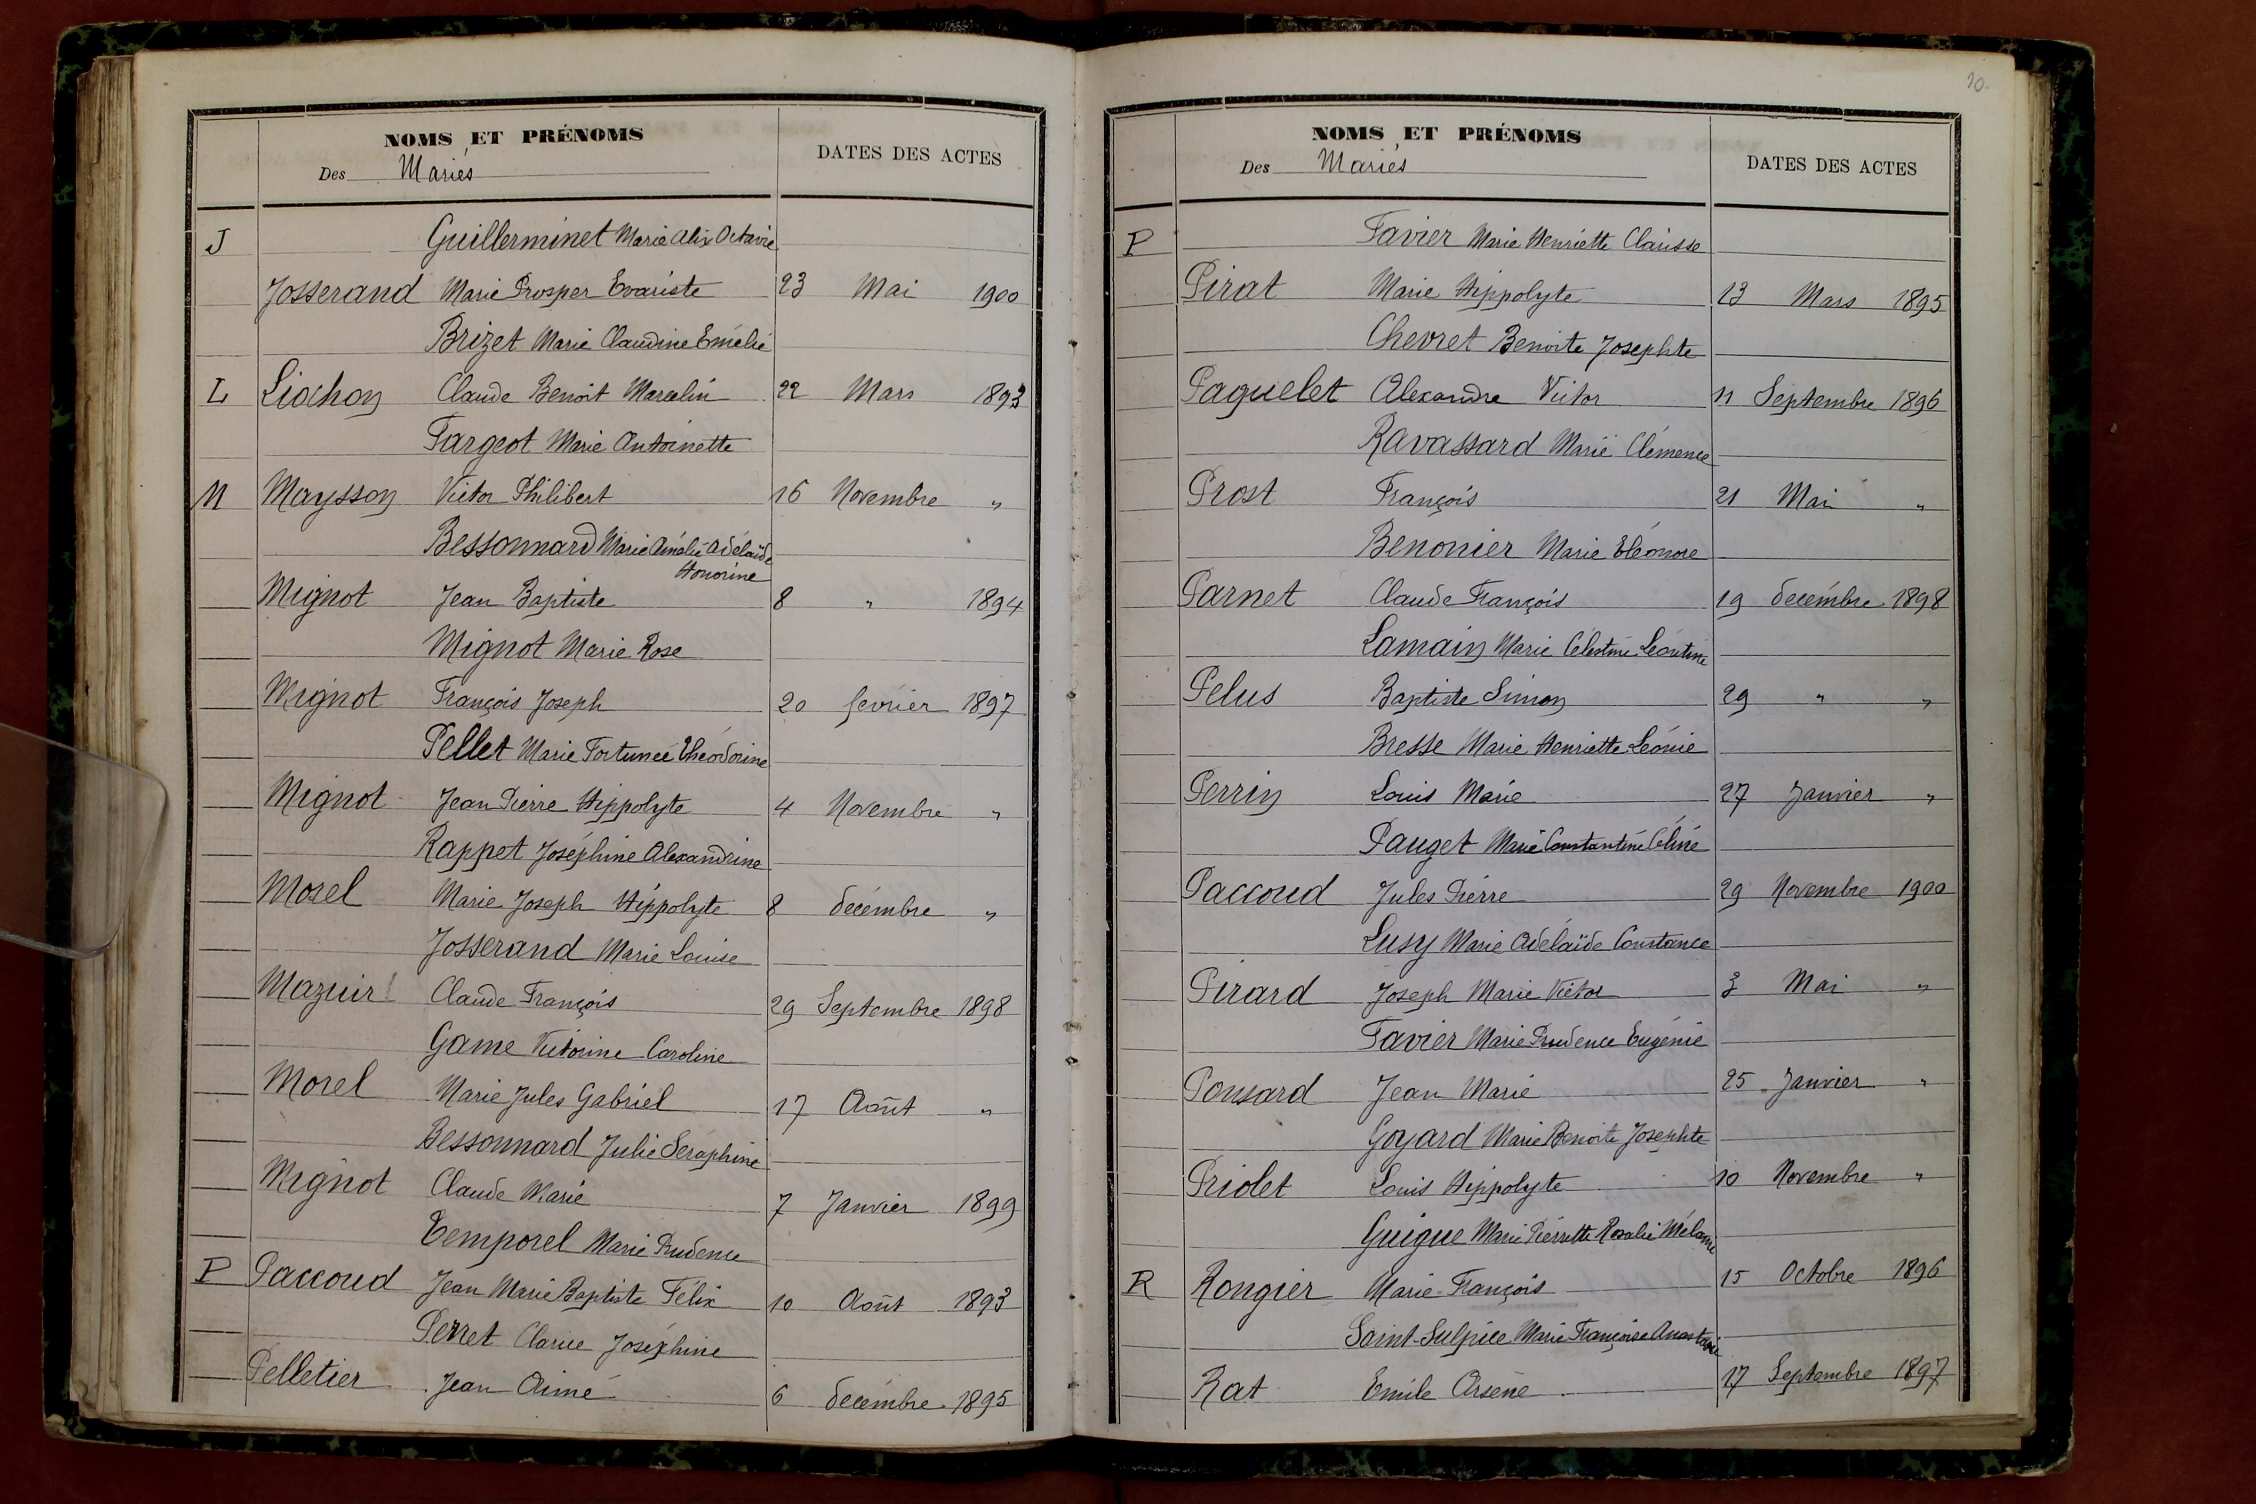 NOMS ET PRÉNOMS
Des Mariés
DATES DES ACTES
J Guillerminet Marie Alix Octavie
Josserand Marie Prosper Evariste 23 Mai 1900
Brizet Marie Claudine Emélie
L Liochon Claude Benoit Marcelin 22 Mars 1893
Fargeot Marie Antoinette
M Maysson Victor Philibert 16 Novembre "
Bessonnard Marie Amélie Adélaïde
Honorine
Mignot Jean Baptiste 8 " 1894
Mignot Marie Rose
Mignot François Joseph 20 février 1897
Pellet Marie Fortunée Théodorine
Mignot Jean Pierre Hippolyte 4 Novembre "
Rappet Joséphine Alexandrine
Morel Marie Joseph Hippolyte 8 décembre "
Josserand Marie Louise
Mazuir Claude François 29 Septembre 1898
Game Victorine Caroline
Morel Marie Jules Gabriel 17 Août "
Bessonnard Julie Séraphine
Mignot Claude Marie 7 Janvier 1899
Temporel Marie Prudence
P Paccoud Jean Marie Baptiste Félix 10 Août 1893
Perret Clarice Joséphine
Pelletier Jean Aimé 6 décembre 1895
10.
NOMS ET PRÉNOMS
Des Mariés
DATES DES ACTES
P Favier Marie Henriette Clarisse
Pirat Marie Hippolyte 13 Mars 1895
Chevret Benoite Josephte
Paguelet Alexandre Victor 11 Septembre 1896
Ravassard Marie Clémence
Prost François 21 Mai "
Benonier Marie Eléonore
Parnet Claude François 19 décembre 1898
Lamain Marie Célestine Léontine
Pelus Baptiste Simon 29 " "
Bresse Marie Henriette Léonie
Perrin Louis Marie 27 Janvier "
Pauget Marie Constantine Céline
Paccoud Jules Pierre 29 Novembre 1900
Lusy Marie Adélaïde Constance
Pirard Joseph Marie Victor 3 Mai "
Favier Marie Prudence Eugénie
Ponsard Jean Marie 25 Janvier "
Goyard Marie Benoite Josephte
Priolet Louis Hippolyte 10 Novembre "
Guigue Marie Pierrette Rosalie Mélanie
R Rongier Marie François 15 Octobre 1896
Saint-Sulpice Marie Françoise Anastasie
Rat Emile Arsène 17 Septembre 1897